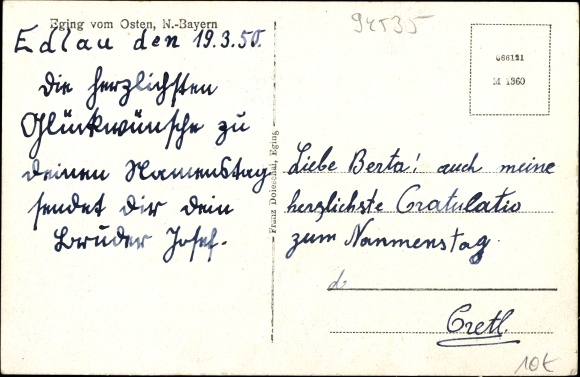 Eging vom Osten, N.-Bayern
Edlau den 19.3.50.
Die herzlichsten
Glückwünsche zu
deinen Namenstag
sendet dir dein
Bruder Josef.
Franz Doleschal, Eging
94535
066121
M 1360
Liebe Berta! auch meine
herzlichste Gratulatio
zum Nanmenstag
Gretl.
10€